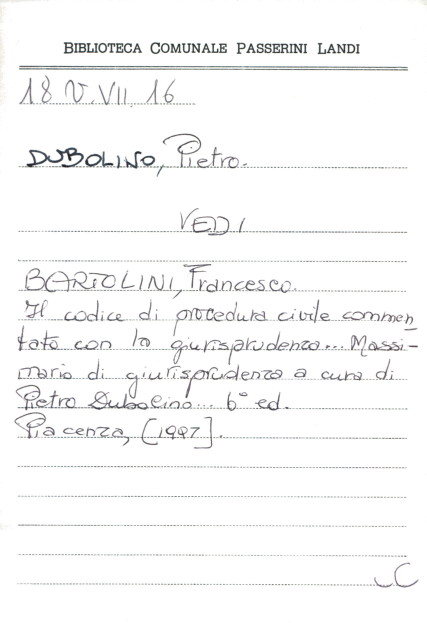 BIBLIOTECA COMUNALE PASSERINI LANDI
18 V.VII.16
DUBOLINO, Pietro.
VEDI
BARTOLINI, Francesco.
Il codice di procedura civile commen
tato con la giurisprudenza... Massi-
mario di giurisprudenza a cura di
Pietro Dubolino... 6° ed.
Piacenza, [1997].